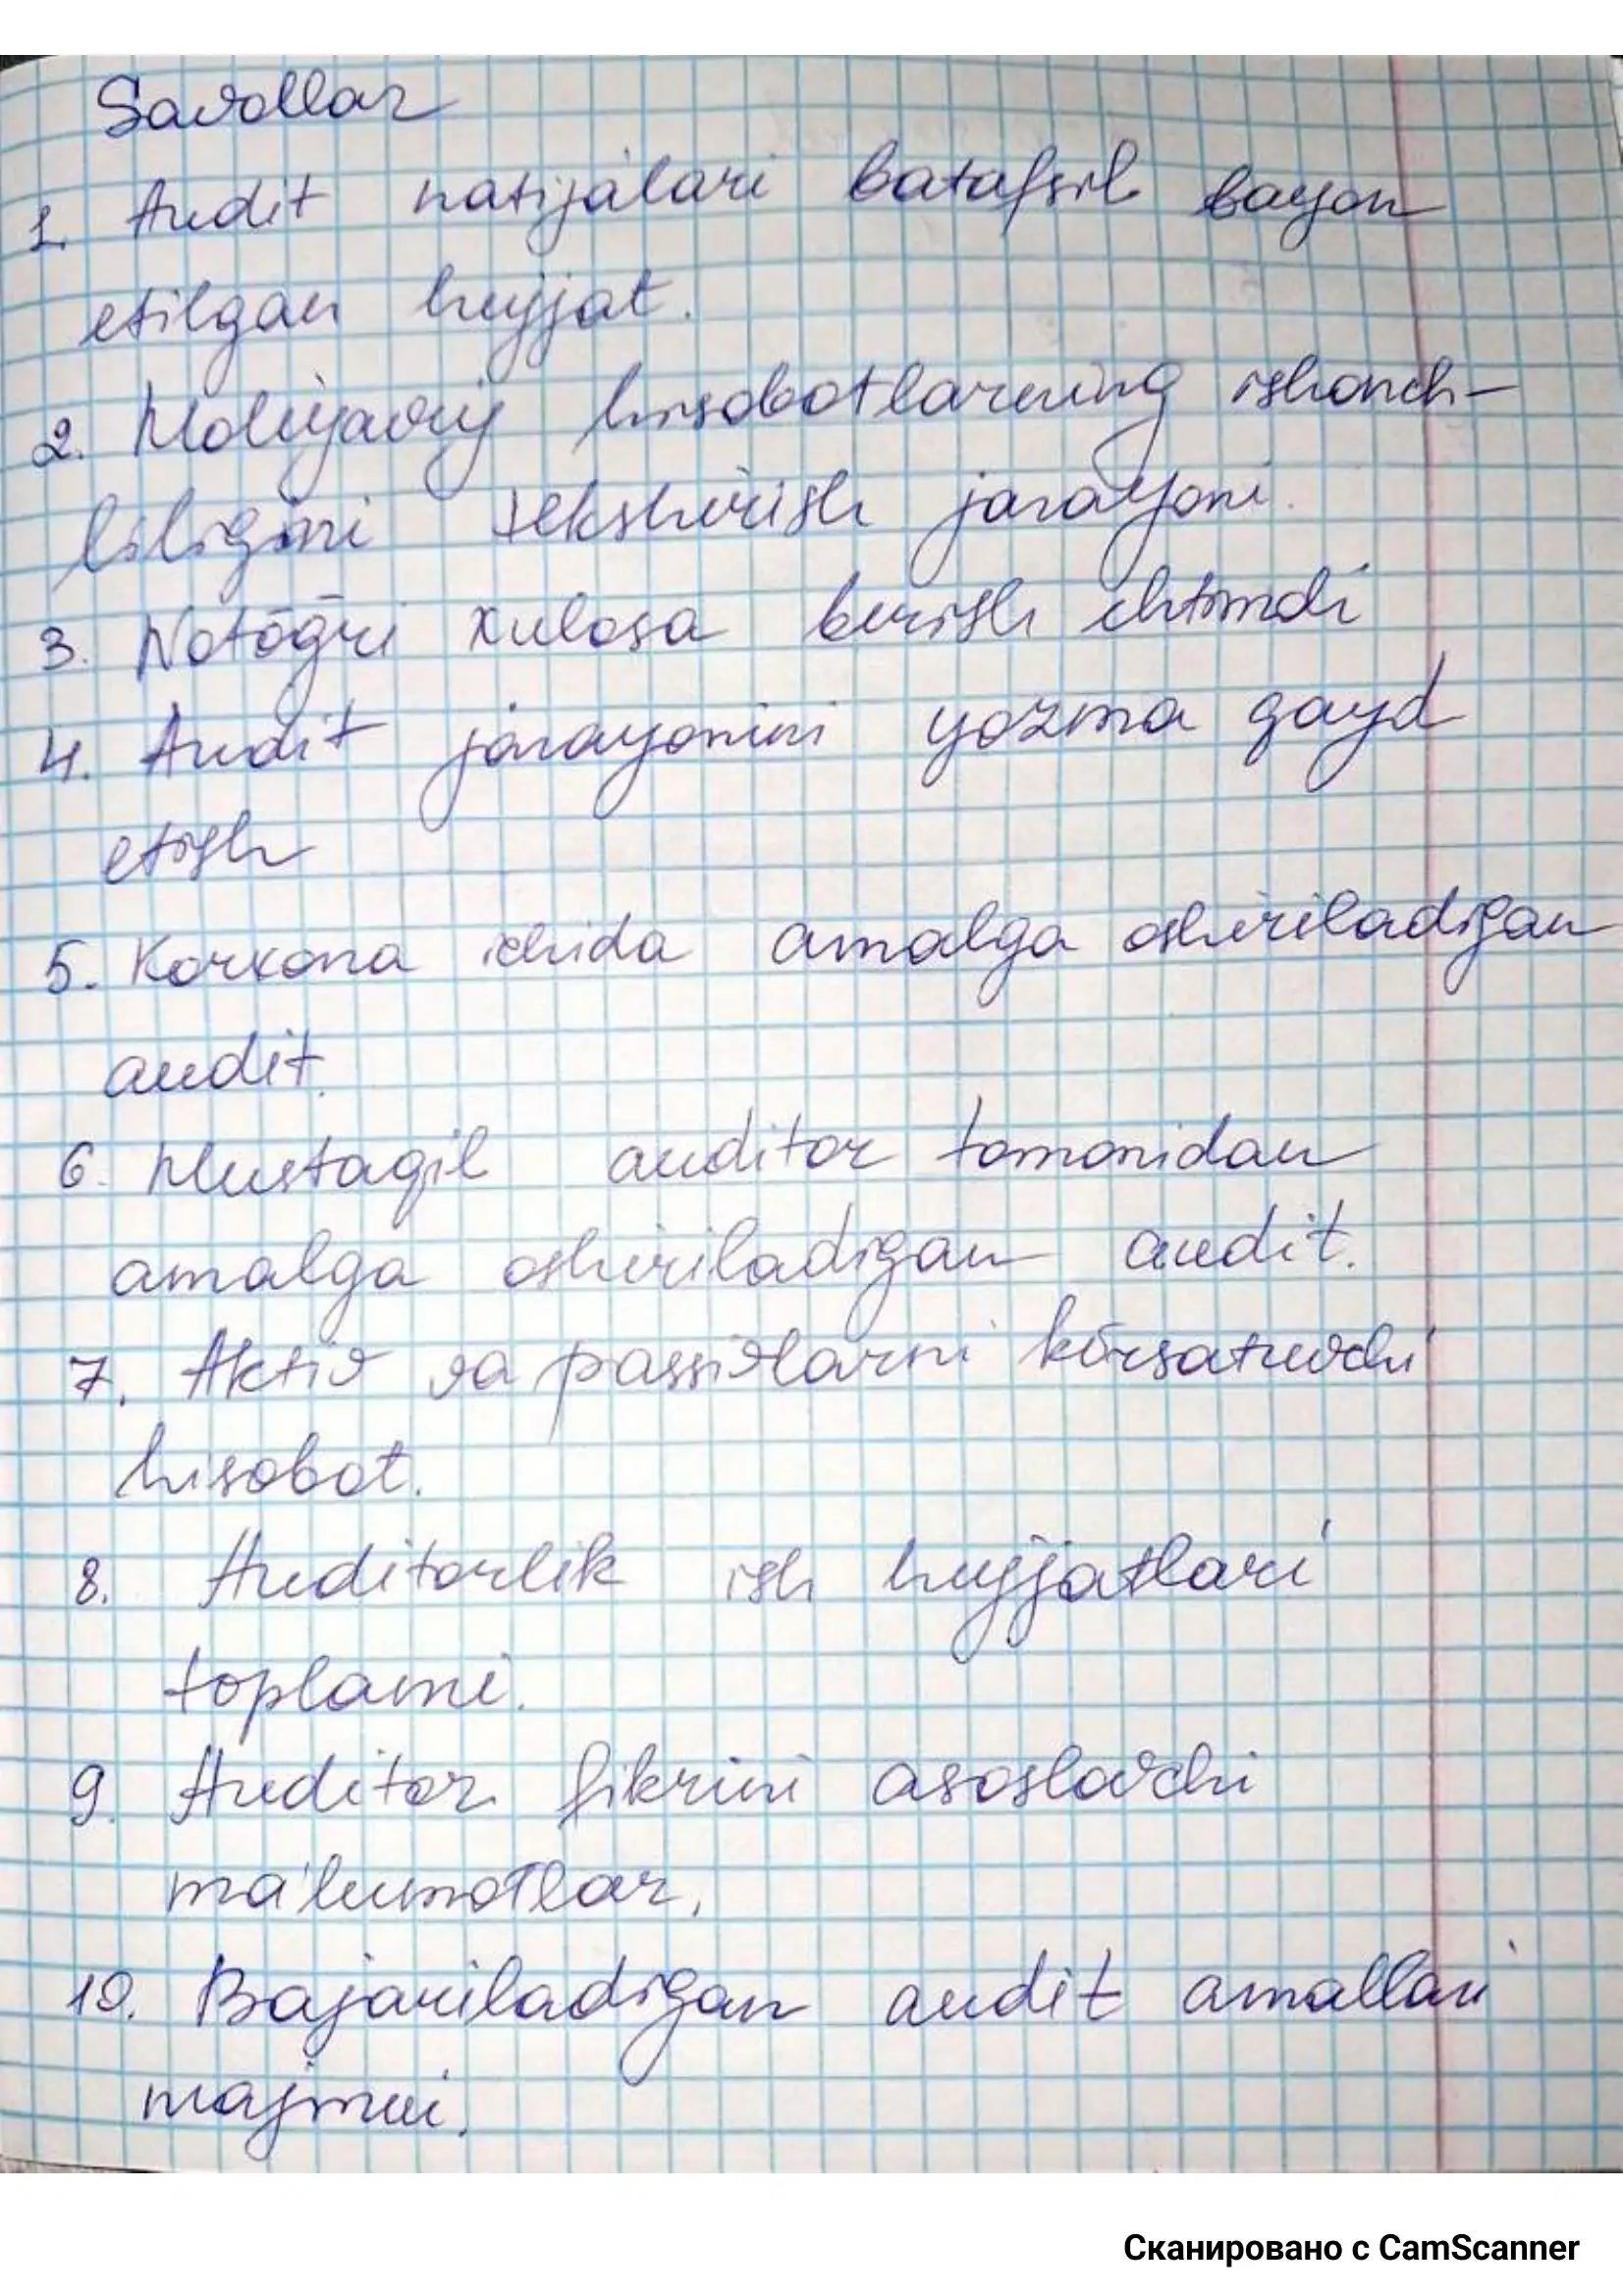 Savollar
1. Audit natijalari batafsil bayon
etilgan hujjat.
2. Moliyaviy hisobotlarning ishonch-
liligini tekshirish jarayoni.
3. Notōgri xulosa berish ehtimoli
4. Audit jarayonini yozma qayd
etish
5. Korxona ichida amalga oshiriladigan
audit.
6. Mustaqil auditor tomonidan
amalga oshiriladigan audit.
7. Aktiv va passivlarni kōrsatuvchi
hisobot.
8. Auditorlik ish hujjatlari
toplami.
9. Auditor fikrini asoslovchi
ma'lumotlar.
10. Bajariladigan audit amallari
majmui.
Сканировано с CamScanner